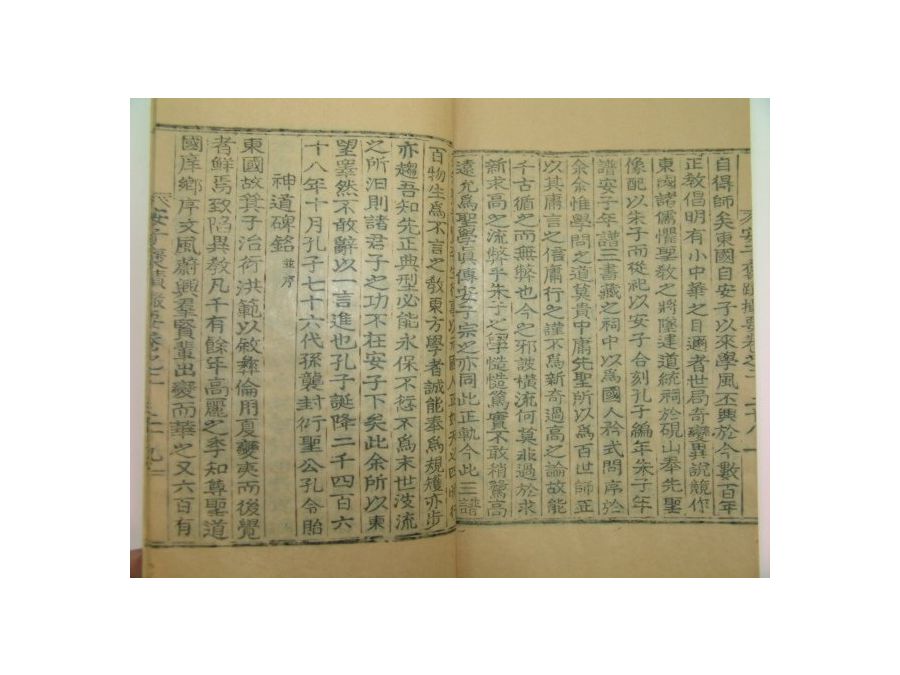 自得師矣東國自安子以來學風丕興於今數百年
正教倡明有小中華之目邇者世局奇變異說競作
東國諸儒懼聖敎之將墜建道統祠於硯山奉先聖
像配以朱子而從祀以安子合刻孔子編年朱子年
譜安子年譜三書藏之祠中以爲國人矜式問序於
余余惟學問之道莫貴中庸先聖所以爲百世師正
以其庸言之信庸行之謹不爲新奇過高之論故能
千古循之而無弊也今之邪詖橫流何莫非過於求
新求高之流弊乎朱子之學慥慥篤實不敢稍騖高
遠允爲聖學眞傳安子宗之亦同此正軌今此三譜
百物生爲不言之敎東方學者誠能奉爲規矱亦步
亦趨吾知先正典型必能永保不愆不爲末世汥流
之所汨則諸君子之功不在安子下矣此余所以東
望睪然不敢辭以一言進也孔子誕降二千四百六
十八年十月孔子七十六代孫襲封衍聖公孔令貽
神道碑銘 並序
東國故箕子治術洪範以敘彝倫用夏變夷而後覺
者鮮焉致陷異敎凡千有餘年高麗之季知尊聖道
國庠鄉序文風蔚興羣賢輩出變而華之又六百有